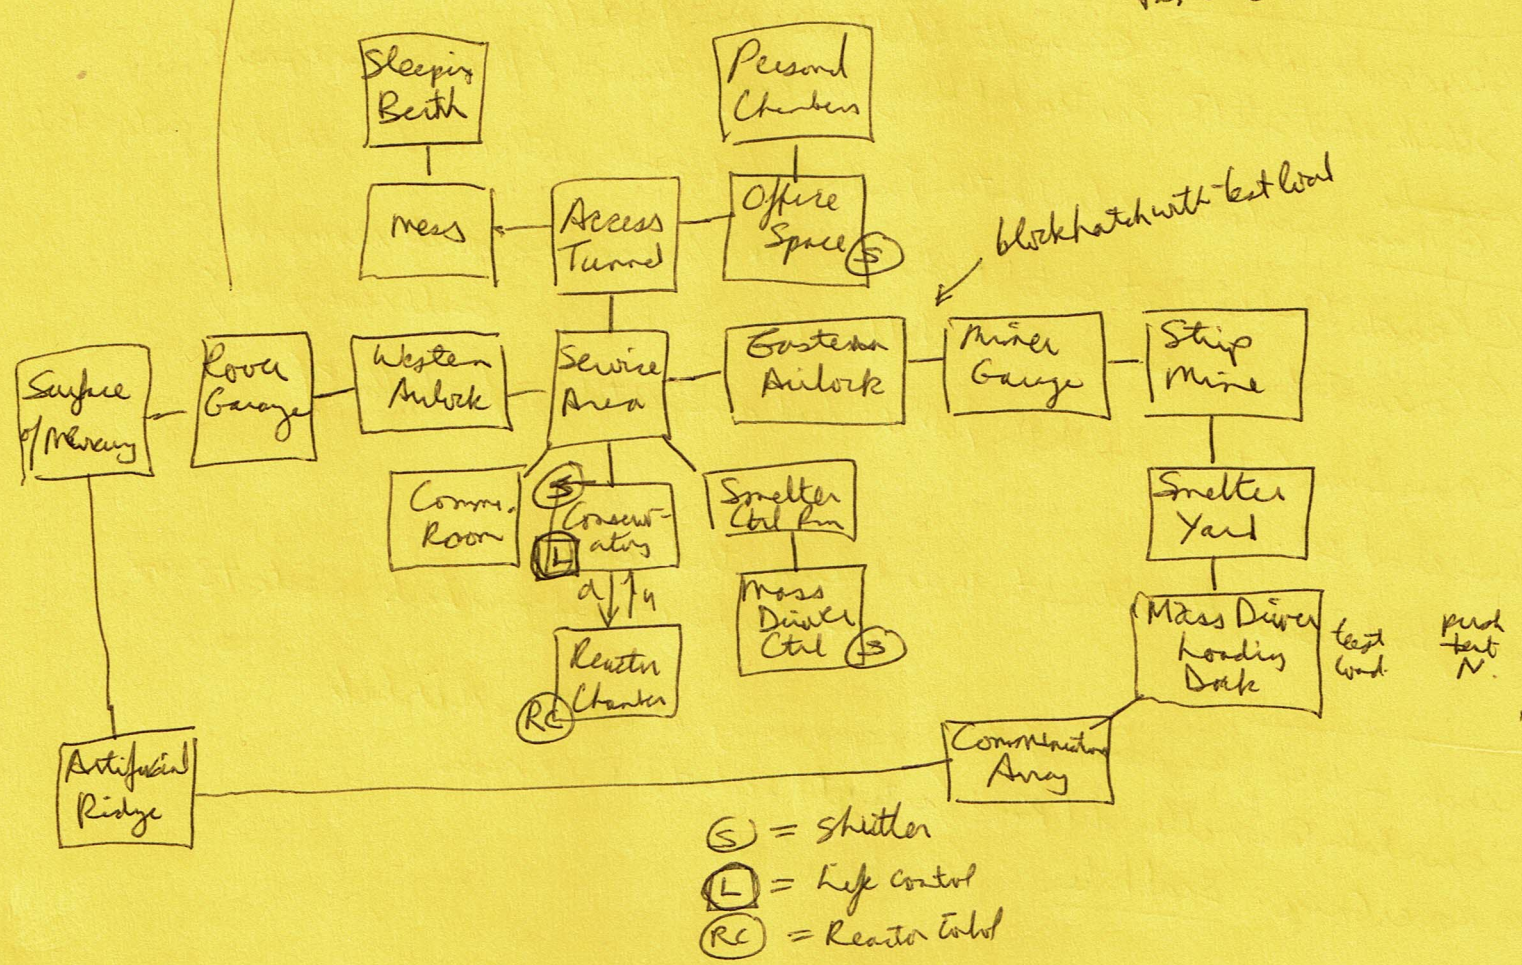 Sleeping
Berth
Personal
Chambers
Mess
Access
Tunnel
Office
Space
S
block hatch with test load
Surface
of Mercury
Rover
Garage
Western
Airlock
Service
Area
Eastern
Airlock
Miner
Garage
Strip
Mine
Comm.
Room
S
Conserv-
atory
L
Smelter
Ctrl Rm
Smelter
Yard
d
u
Mass
Driver
Ctrl
S
Mass Driver
Loading
Dock
test
load
push
test
N.
Reactor
Chamber
RC
Artificial
Ridge
Communication
Array
S = Shutter
L = Life Control
RC = Reactor Control